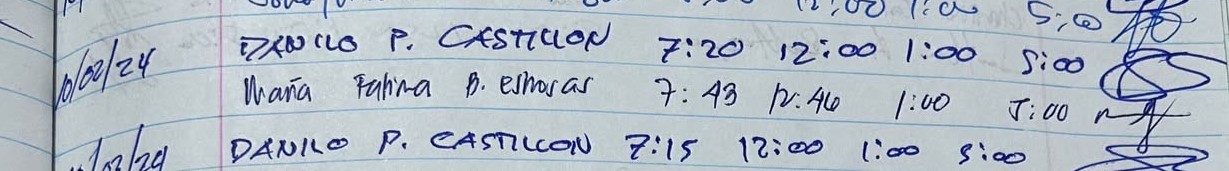 12:00 1:00 5:00
10/02/24 DANILO P. CASTILLON 7:20 12:00 1:00 5:00
Maria Fatima B. 7:43 12:46 1:00 5:00
DANILO P. CASTILLON 7:15 12:00 1:00 5:00